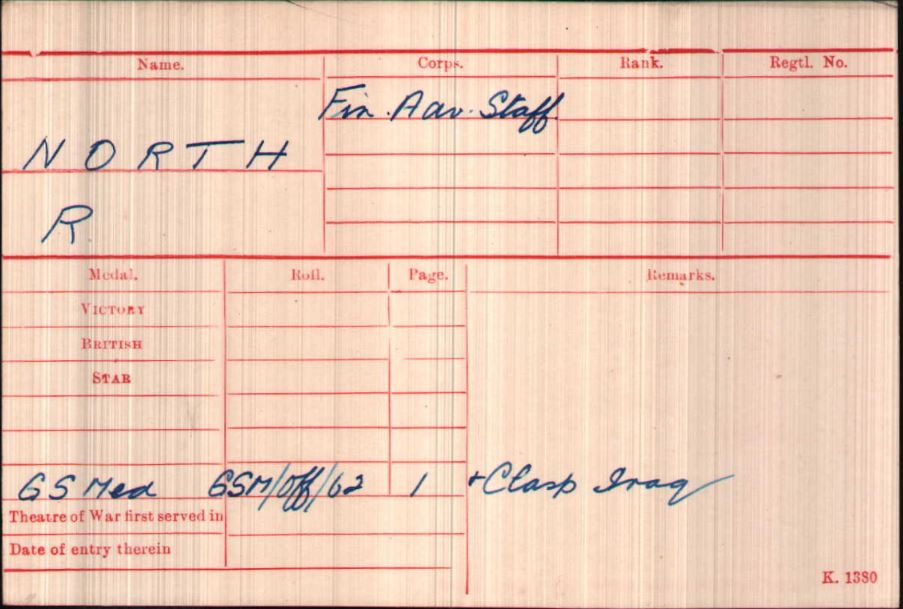 Name. Corps. Rank. Regtl. No.
Fin. Adv. Staff
NORTH
R.
Medal. Roll. Page. Remarks.
VICTORY
BRITISH
STAR
GS Med GSM/Off/62 1 + Clasp Iraq
Theatre of War first served in
Date of entry therein
K. 1380